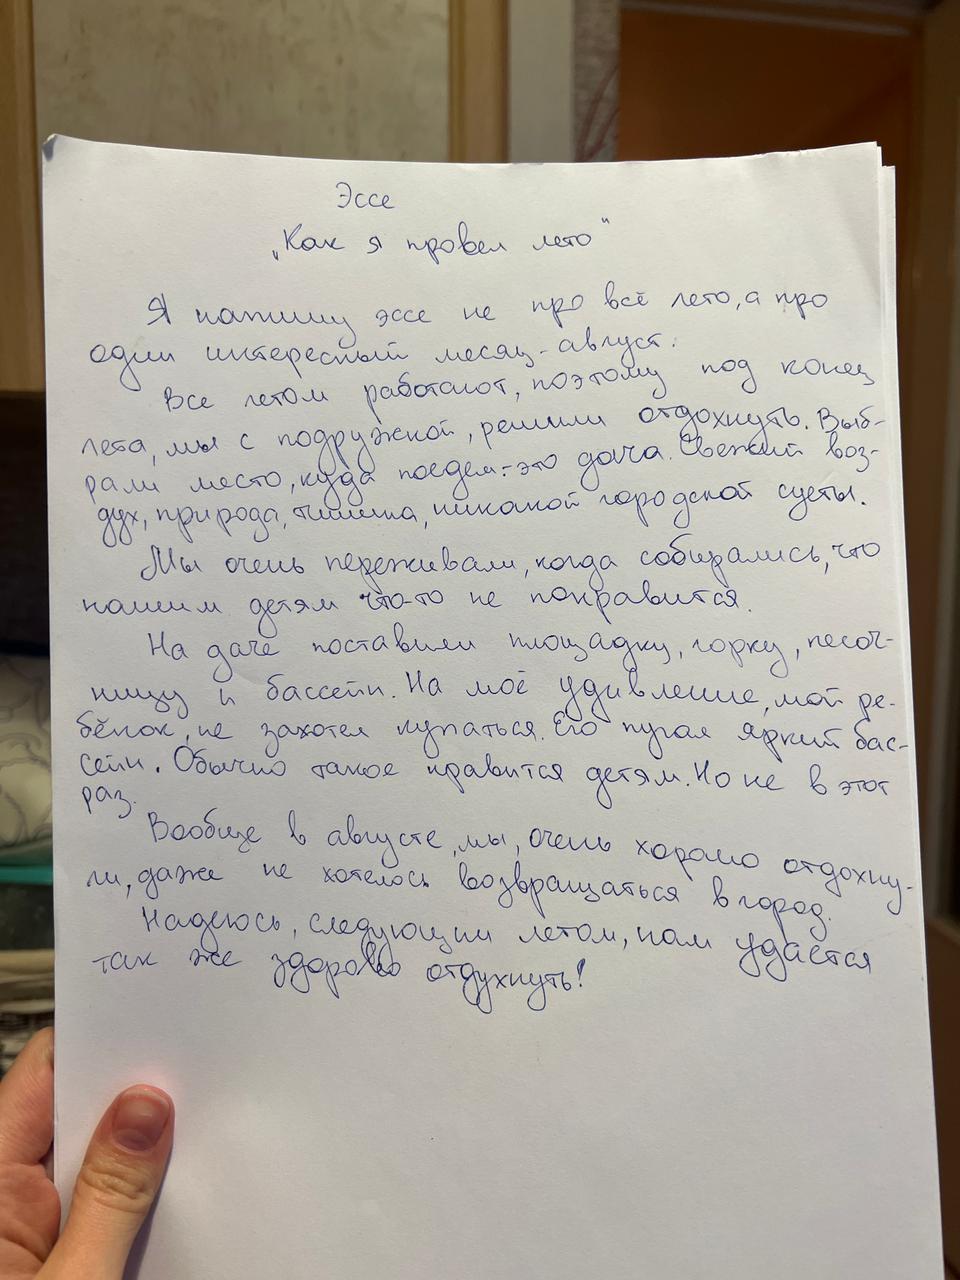 Эссе
„Как я провел лето"
Я напишу эссе не про всё лето, а про
один интересный месяц - август.
Все летом работают, поэтому под конец
лета, мы с подружкой, решили отдохнуть. Выб-
рали место, куда поедем - это дача. Свежий воз-
дух, природа, тишина, никакой городской суеты.
Мы очень переживали, когда собирались, что
нашим детям что-то не понравится.
На даче поставили площадку, горку, песоч-
ницу и бассейн. На моё удивление, мой ре-
бёнок, не захотел купаться. Его пугал яркий бас-
сейн. Обычно такое нравится детям. Но не в этот
раз.
Вообще в августе, мы, очень хорошо отдохну-
ли, даже не хотелось возвращаться в город.
Надеюсь, следующим летом, нам удастся
так же здорово отдухнуть!